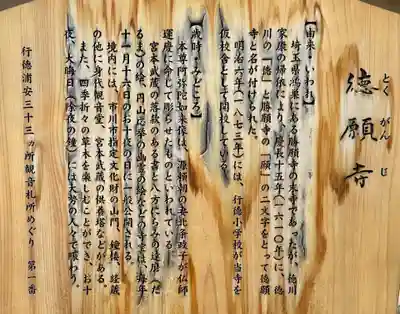 徳願寺
とく がん じ
【由来・いわれ】
埼玉県鴻巣にある勝願寺の末寺であったが、徳川
家康の帰依により、慶長十五年（一六一〇年）に、徳
川の「徳」と勝願寺の「願」の二文字をとって徳願
寺と名が付けられた。
明治六年（一八七三年）には、行徳小学校が当寺を
仮校舎として開校している。
【歳時・みどころ】
本専阿弥陀如来像は、源頼朝の妻北条政子が仏師
運慶に命じて彫ったものといわれている。
宮本武蔵の落款のある書と八方にらみの達磨（だ
るま）の絵、円山応挙の幽霊の絵などの寺宝は、毎年
十一月十六日のお十夜の日に一般公開される。
境内には、市川市指定文化財の山門、鐘楼、経蔵
の他に身代観音堂、宮本武蔵の供養塔などがある。
また、四季折々の草木を楽しむことができ、お十
夜、大晦日「除夜の鐘」には大勢の人々で賑わう。
行徳浦安三十三ヵ所観音札所めぐり 第一番